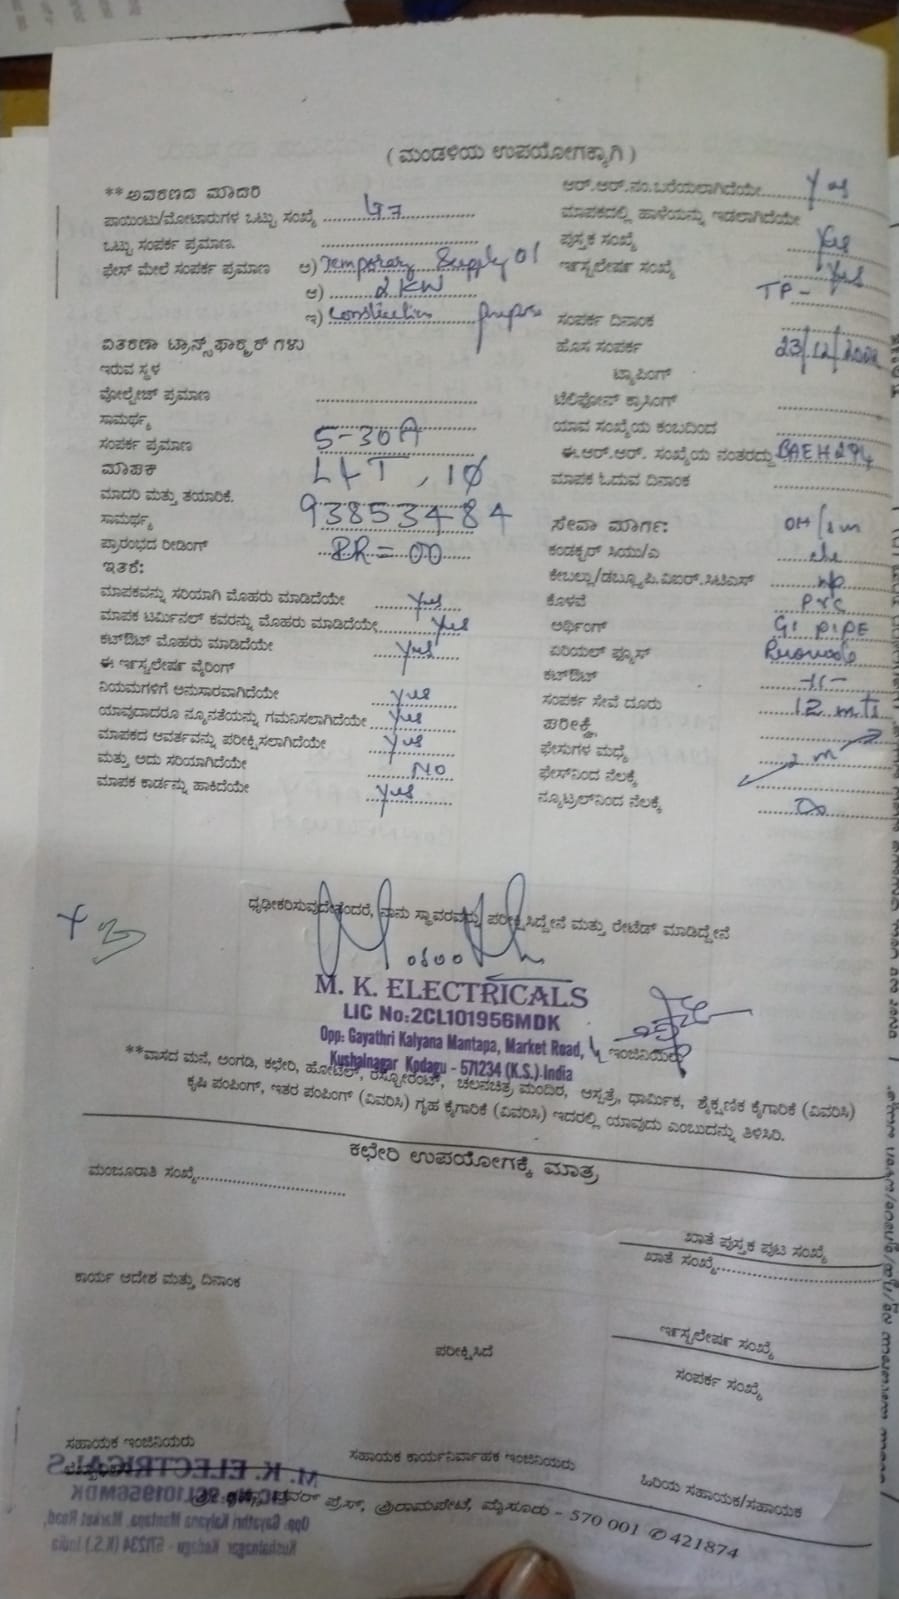 ( ಮಂಡಳಿಯ ಉಪಯೋಗಕ್ಕಾಗಿ )
**ಆವರಣದ ಮಾದರಿ
ಪಾಯಿಂಟು/ಮೋಟಾರುಗಳ ಒಟ್ಟು ಸಂಖ್ಯೆ
ಒಟ್ಟು ಸಂಪರ್ಕ ಪ್ರಮಾಣ.
ಫೇಸ್ ಮೇಲೆ ಸಂಪರ್ಕ ಪ್ರಮಾಣ ಅ) Temporary Supply 01
ಆ) 2 KW
ಇ)
ವಿತರಣಾ ಟ್ರಾನ್ಸ್‌ಫಾರ್‍ಮರ್ ಗಳು
ಇರುವ ಸ್ಥಳ
ವೋಲ್ಟೇಜ್ ಪ್ರಮಾಣ
ಸಾಮರ್ಥ್ಯ
ಸಂಪರ್ಕ ಪ್ರಮಾಣ 5-30A
ಮಾಪಕ L&T, 1Ø
ಮಾದರಿ ಮತ್ತು ತಯಾರಿಕೆ.
ಸಾಮರ್ಥ್ಯ 93853484
ಪ್ರಾರಂಭದ ರೀಡಿಂಗ್ = 00
ಇತರೆ:
ಮಾಪಕವನ್ನು ಸರಿಯಾಗಿ ಮೊಹರು ಮಾಡಿದೆಯೇ Yes
ಮಾಪಕ ಟರ್ಮಿನಲ್ ಕವರನ್ನು ಮೊಹರು ಮಾಡಿದೆಯೇ Yes
ಕಟ್‌ಔಟ್ ಮೊಹರು ಮಾಡಿದೆಯೇ Yes
ಈ ಇನ್ಸ್ಟಲೇಷನ್ ವೈರಿಂಗ್
ನಿಯಮಗಳಿಗೆ ಅನುಸಾರವಾಗಿದೆಯೇ Yes
ಯಾವುದಾದರೂ ನ್ಯೂನತೆಯನ್ನು ಗಮನಿಸಲಾಗಿದೆಯೇ Yes
ಮಾಪಕದ ಆವರ್ತವನ್ನು ಪರೀಕ್ಷಿಸಲಾಗಿದೆಯೇ Yes
ಮತ್ತು ಅದು ಸರಿಯಾಗಿದೆಯೇ No
ಮಾಪಕ ಕಾರ್ಡನ್ನು ಹಾಕಿದೆಯೇ Yes
ಆರ್.ಆರ್.ನಂ.ಬರೆಯಲಾಗಿದೆಯೇ Yes
ಮಾಪಕದಲ್ಲಿ ಹಾಳೆಯನ್ನು ಇಡಲಾಗಿದೆಯೇ
ಪುಸ್ತಕ ಸಂಖ್ಯೆ Yes
ಇನ್ಸ್ಟಲೇಷನ್ ಸಂಖ್ಯೆ Yes
TP-
ಸಂಪರ್ಕ ದಿನಾಂಕ
ಹೊಸ ಸಂಪರ್ಕ
ಟ್ಯಾಪಿಂಗ್
ಟೆಲಿಫೋನ್ ಕ್ರಾಸಿಂಗ್
ಯಾವ ಸಂಖ್ಯೆಯ ಕಂಬದಿಂದ
ಈ.ಆರ್.ಆರ್. ಸಂಖ್ಯೆಯ ನಂತರದ್ದು BAEH294
ಮಾಪಕ ಓದುವ ದಿನಾಂಕ
ಸೇವಾ ಮಾರ್ಗ:
ಕಂಡಕ್ಟರ್ ಸಿಯು/ಎ
ಕೇಬಲ್ಲು/ಡಬ್ಲ್ಯೂ.ಪಿ.ವಿಐಆರ್.ಸಿಟಿಎಸ್ wp
ಕೊಳವೆ PVC
ಅರ್ಥಿಂಗ್ GI PIPE
ಏರಿಯಲ್ ಫ್ಯೂಸ್
ಕಟ್‌ಔಟ್ -11-
ಸಂಪರ್ಕ ಸೇವೆ ದೂರು 12 mts
ಪರೀಕ್ಷೆ
ಫೇಸುಗಳ ಮಧ್ಯೆ 2 m
ಫೇಸ್‌ನಿಂದ ನೆಲಕ್ಕೆ
ನ್ಯೂಟ್ರಲ್‌ನಿಂದ ನೆಲಕ್ಕೆ
ಧೃಢೀಕರಿಸುವುದೇನೆಂದರೆ, ನಾನು ಸ್ಥಾವರವನ್ನು ಪರೀಕ್ಷಿಸಿದ್ದೇನೆ ಮತ್ತು ರೇಟೆಡ್ ಮಾಡಿದ್ದೇನೆ
M. K. ELECTRICALS
LIC No:2CL101956MDK
Opp: Gayathri Kalyana Mantapa, Market Road,
Kushalnagar Kodagu - 571234 (K.S.) India
ಇಂಜಿನಿಯರು
**ವಾಸದ ಮನೆ, ಅಂಗಡಿ, ಕಛೇರಿ, ಹೋಟೆಲ್, ರೆಸ್ಟೋರೆಂಟ್, ಚಲನಚಿತ್ರ ಮಂದಿರ, ಆಸ್ಪತ್ರೆ, ಧಾರ್ಮಿಕ, ಶೈಕ್ಷಣಿಕ ಕೈಗಾರಿಕೆ (ವಿವರಿಸಿ)
ಕೃಷಿ ಪಂಪಿಂಗ್, ಇತರ ಪಂಪಿಂಗ್ (ವಿವರಿಸಿ) ಗೃಹ ಕೈಗಾರಿಕೆ (ವಿವರಿಸಿ) ಇದರಲ್ಲಿ ಯಾವುದು ಎಂಬುದನ್ನು ತಿಳಿಸಿರಿ.
ಕಛೇರಿ ಉಪಯೋಗಕ್ಕೆ ಮಾತ್ರ
ಮಂಜೂರಾತಿ ಸಂಖ್ಯೆ
ಖಾತೆ ಪುಸ್ತಕ ಪುಟ ಸಂಖ್ಯೆ
ಖಾತೆ ಸಂಖ್ಯೆ
ಕಾರ್ಯ ಆದೇಶ ಮತ್ತು ದಿನಾಂಕ
ಇನ್ಸ್ಟಲೇಷನ್ ಸಂಖ್ಯೆ
ಪರೀಕ್ಷಿಸಿದೆ
ಸಂಪರ್ಕ ಸಂಖ್ಯೆ
ಸಹಾಯಕ ಇಂಜಿನಿಯರು
ಸಹಾಯಕ ಕಾರ್ಯನಿರ್ವಾಹಕ ಇಂಜಿನಿಯರು
ಹಿರಿಯ ಸಹಾಯಕ/ಸಹಾಯಕ
ಪವರ್ ಪ್ರೆಸ್, ಶ್ರೀರಾಮಪೇಟೆ, ಮೈಸೂರು - 570 001 ✆ 421874